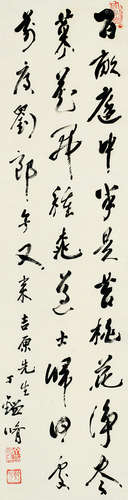 百畝庭中半是苔桃花淨盡
菜花開種桃道士歸何處
前度劉郎今又來 吉原先生
丁鑑脩